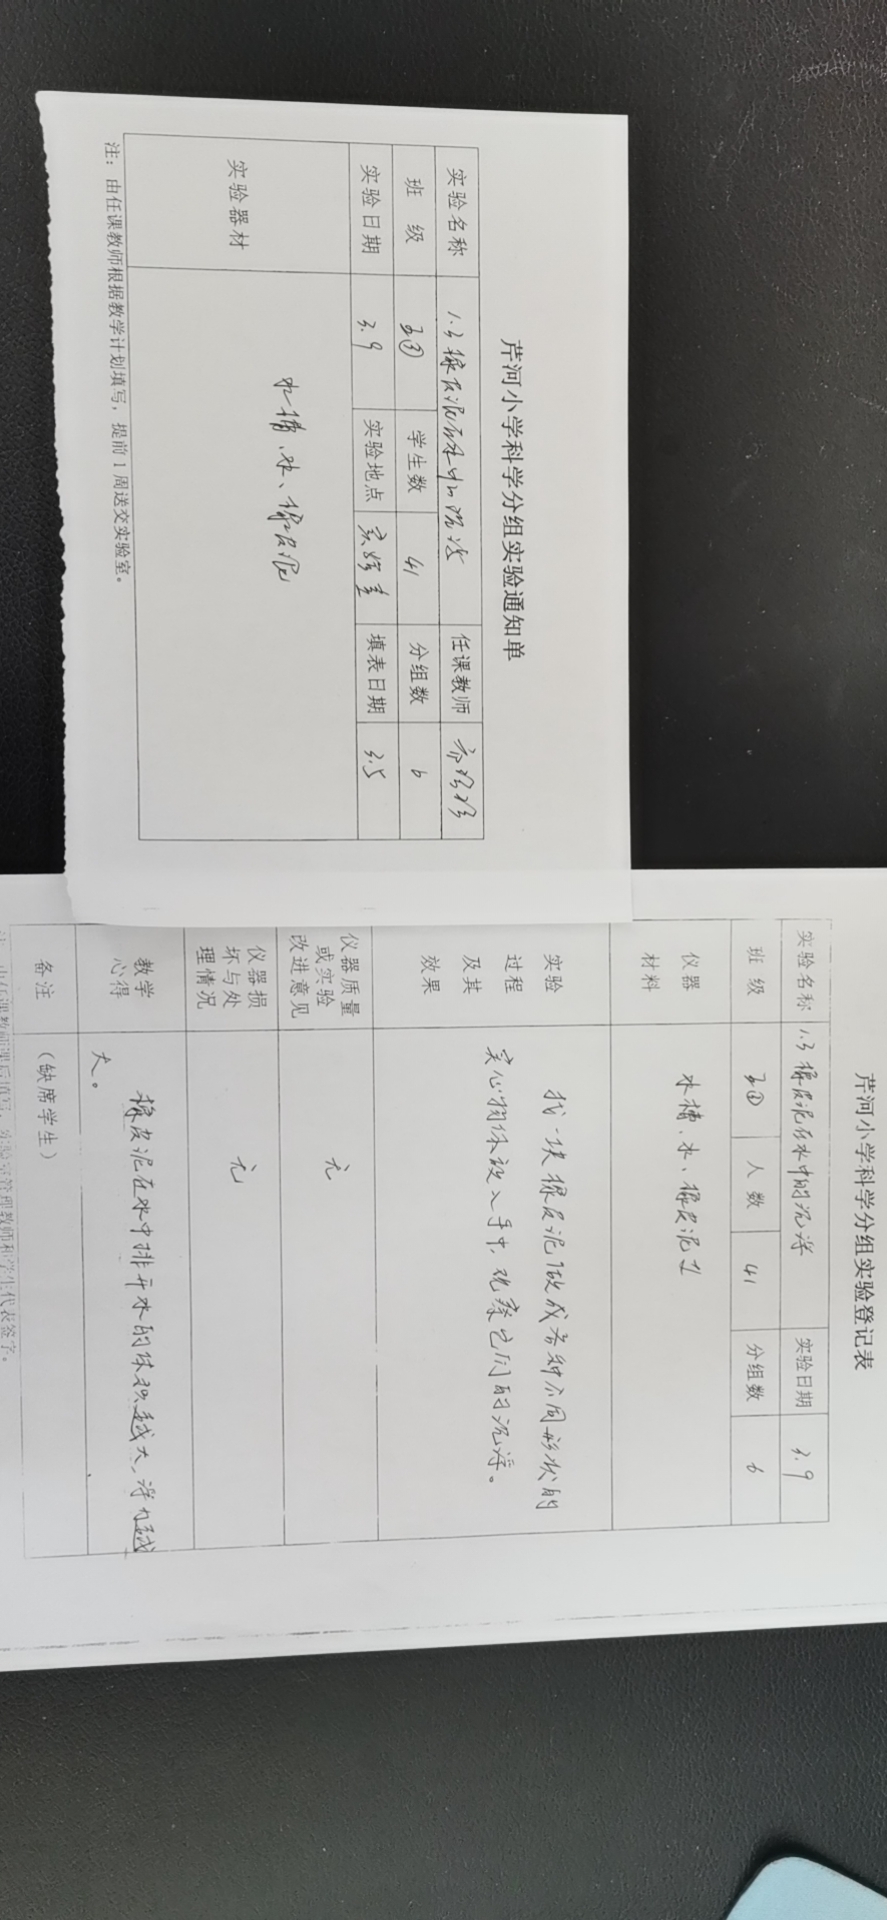 芹河小学科学分组实验通知单
实验名称 1.3橡皮泥在水中的沉浮 任课教师
班 级 学生数 41 分组数 6
实验日期 3.9 实验地点 实验室 填表日期 3.5
实验器材 水槽、水、橡皮泥
注：由任课教师根据教学计划填写，提前1周送交实验室。
芹河小学科学分组实验登记表
实验名称 1.3橡皮泥在水中的沉浮 实验日期 3.9
班 级 人 数 41 分组数 6
仪器
材料
水槽、水、橡皮泥
实验
过程
及其
效果
找一块橡皮泥做成各种不同形状的
实心物体放入手中，观察它们的沉浮。
仪器质量
或实验
改进意见
无
仪器损
坏与处
理情况
无
教学
心得
橡皮泥在水中排开水的体积越大，浮力越
大。
备注 （缺席学生）
注：由任课教师课后填写，实验室管理教师和学生代表签字。